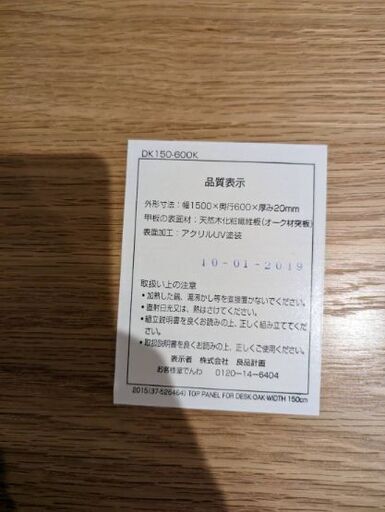 DK150-600K
品質表示
外形寸法：幅1500×奥行600×厚み20mm
甲板の表面材：天然木化粧繊維板（オーク材突板）
表面加工：アクリルUV塗装
10-01-2019
取扱い上の注意
・加熱した鍋、湯沸かし等を直接置かないでください。
・直射日光又は、熱はさけてください。
・組立説明書を良くお読みの上、正しく組み立ててください。
・取扱説明書を良くお読みの上、正しくご使用ください。
表示者　株式会社　良品計画
お客様室でんわ　0120-14-6404
2015(37-526464) TOP PANEL FOR DESK OAK WIDTH 150cm